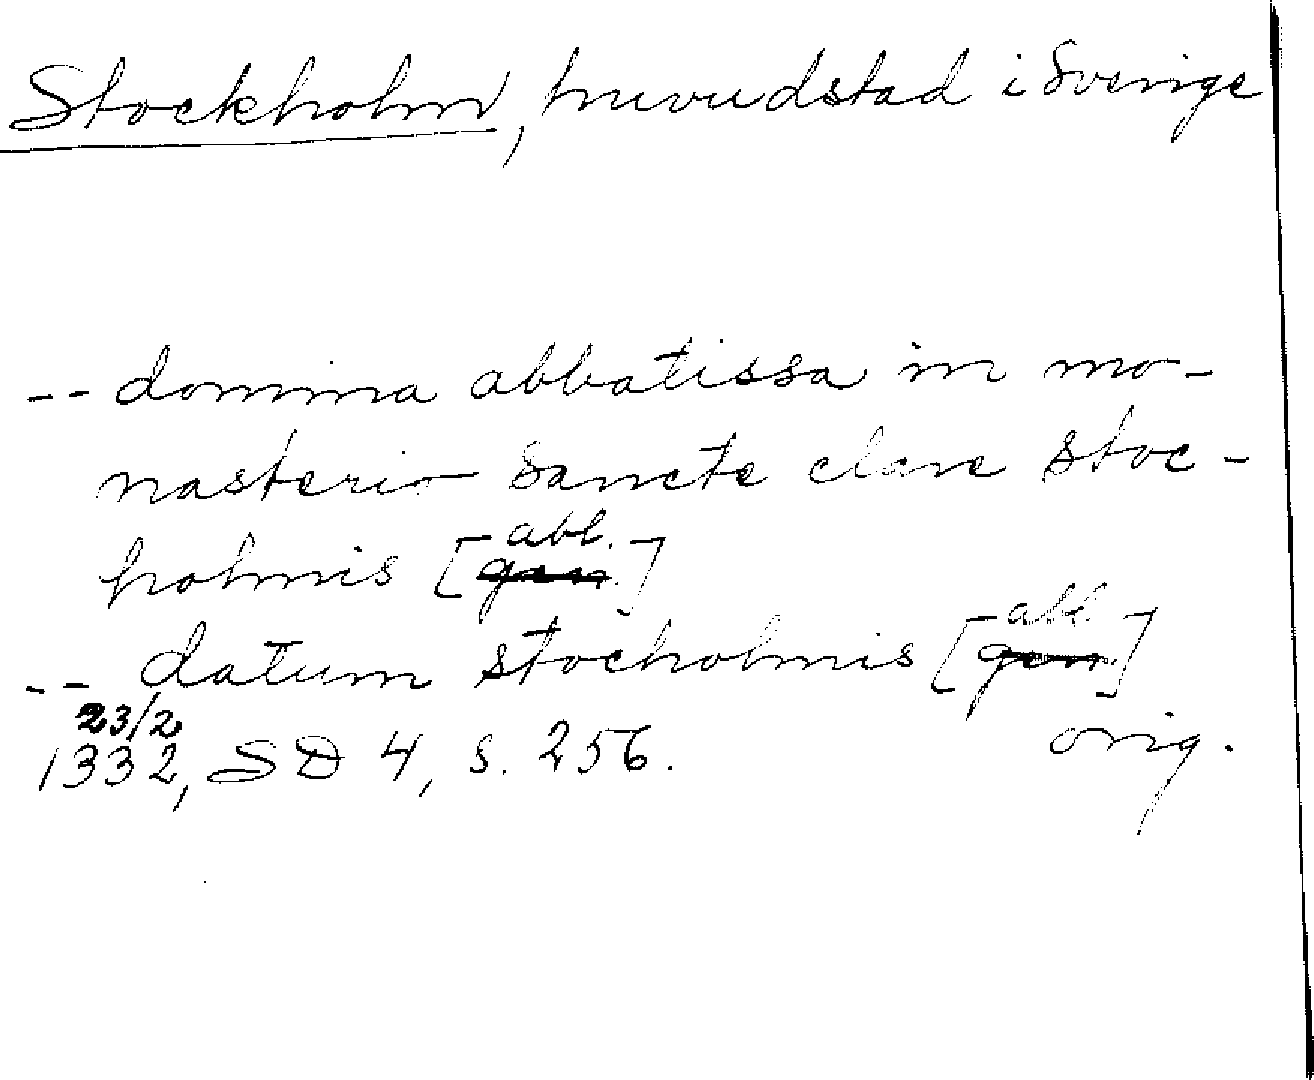 Stockholm, huvudstad i Sverige
-- domina abbatissa in mo-
nasterio sancte clare stoc-
holmis [gen. abl.]
-- datum stocholmis [gen. abl.]
23/2
1332, SD 4, s. 256. orig.